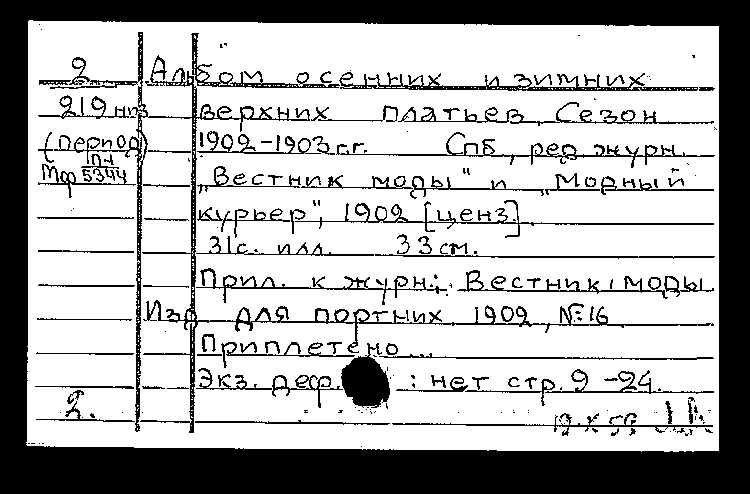 2 Альбом осенних и зимних
219 нпз верхних платьев. Сезон
(период) 1902-1903 г.г. Спб, ред. журн.
Мф П-1 5344 „Вестник моды" и „Модный
курьер", 1902 [ценз].
31 с. илл. 33 см.
Прил. к журн.: Вестник моды
Изд. для портних. 1902, № 16.
Приплетено...
Экз. деф. : нет стр. 9-24.
2.
19-X-59